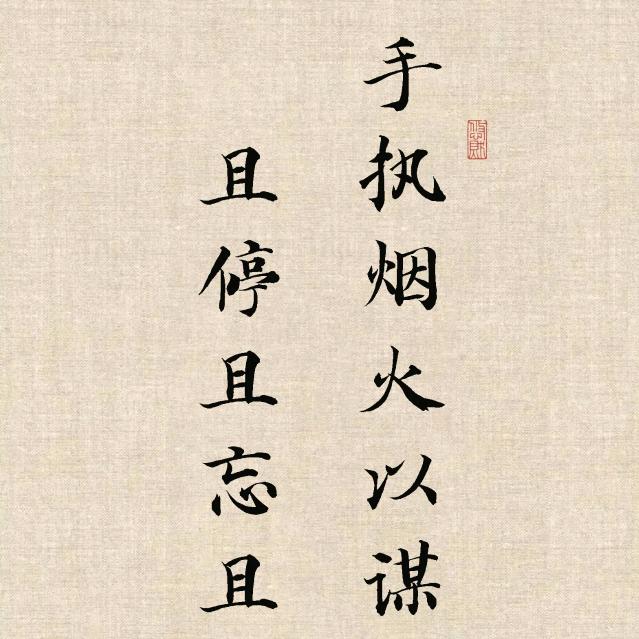 手执烟火以谋
且停且忘且